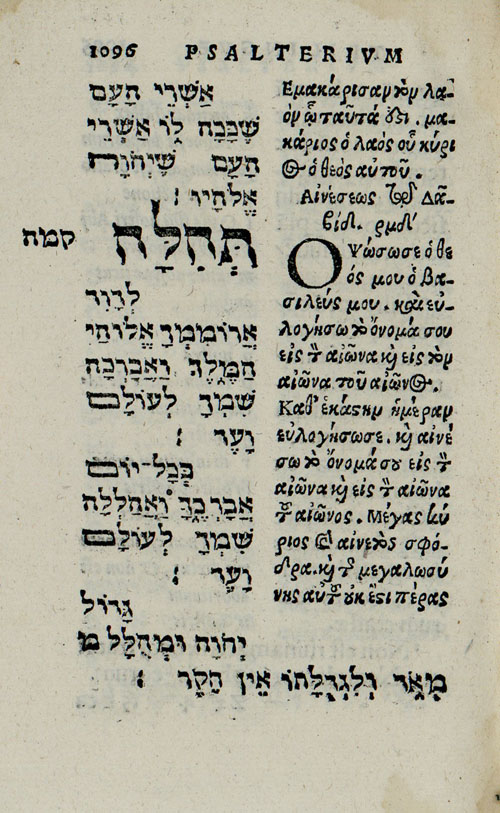 1096 PSALTERIVM
אַשְׁרֵי הָעָם
שֶׁכָּכָה לּוֹ אַשְׁרֵי
הָעָם שֶׁיְהוָֹה
אֱלֹהָיו :
קמה תְּהִלָּה
לְדָוִד
אֲרוֹמִמְךָ אֱלוֹהַי
הַמֶּלֶךְ וַאֲבָרְכָה
שִׁמְךָ לְעוֹלָם
וָעֶד :
בְּכָל־יוֹם
אֲבָרְכֶךָּ וַאֲהַלְלָה
שִׁמְךָ לְעוֹלָם
וָעֶד :
גָּדוֹל
יְהוָה וּמְהֻלָּל מ
מְאֹד וְלִגְדֻלָּתוֹ אֵין חֵקֶר :
Εμακάρισαν τὸν λα-
ὸν ᾧ ταῦτά ὅξι. μα-
κάριος ὁ λαὸς οὗ κύρι
ος ὁ θεὸς αὐτοῦ.
Αἰνέσεως τῷ Δα-
βίδ. ρμδʹ
ΟΨώσω σε ὁ θε
ός μου ὁ βα-
σιλεύς μου. καὶ εὐ-
λογήσω τὸ ὄνομά σου
εἰς τὸν αἰῶνα καὶ εἰς τὸν
αἰῶνα τοῦ αἰῶνος.
Καθʹ ἑκάστην ἡμέραν
εὐλογήσω σε. καὶ αἰνέ
σω τὸ ὄνομά σου εἰς τὸν
αἰῶνα καὶ εἰς τὸν αἰῶνα
τοῦ αἰῶνος. Μέγας κύ
ριος καὶ αἰνετὸς σφό-
δρα. καὶ τῆς μεγαλωσύ
νης αὐτοῦ οὐκ ἔστι πέρας